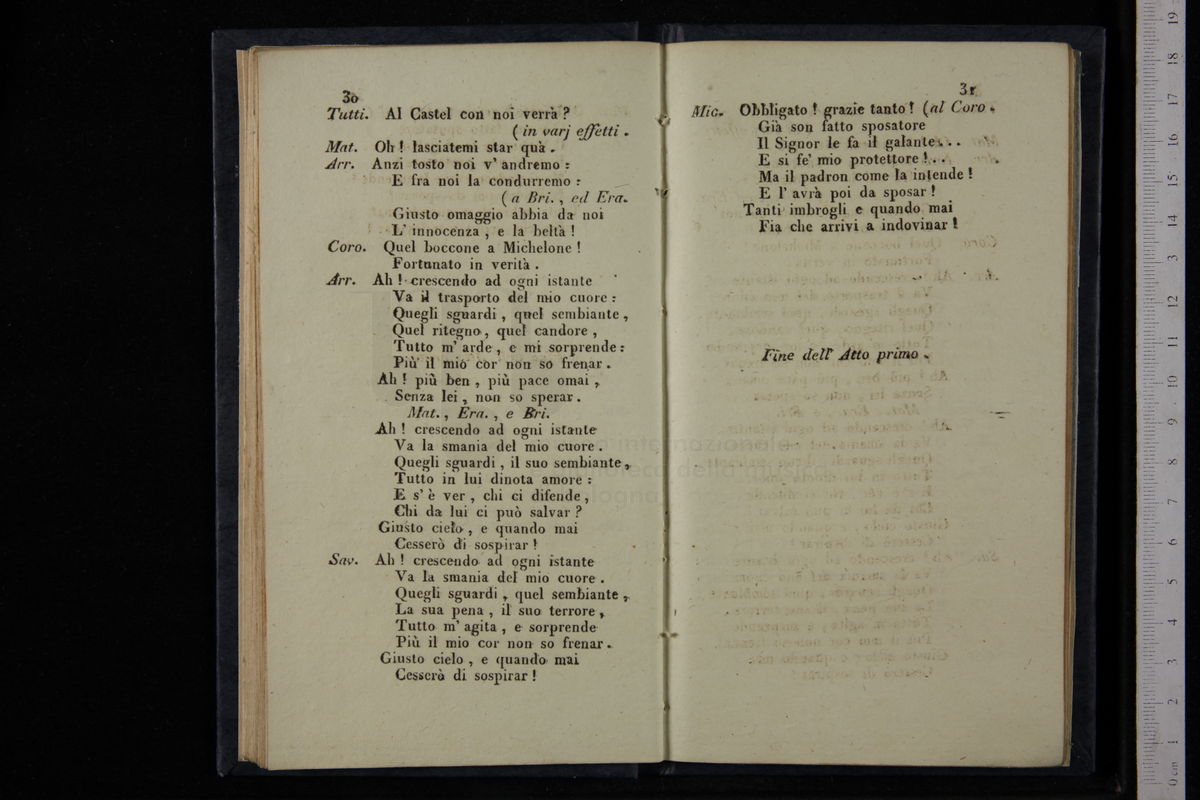 30
Tutti. Al Castel con noi verrà ?
( in varj effetti .
Mat. Oh ! lasciatemi star quà .
Arr. Anzi tosto noi v' andremo :
E fra noi la condurremo :
( a Bri. , ed Era.
Giusto omaggio abbia da noi
L' innocenza , e la beltà !
Coro. Quel boccone a Michelone !
Fortunato in verità .
Arr. Ah ! crescendo ad ogni istante
Va il trasporto del mio cuore :
Quegli sguardi , quel sembiante ,
Quel ritegno , quel candore ,
Tutto m' arde , e mi sorprende :
Più il mio cor non so frenar .
Ah ! più ben , più pace omai ,
Senza lei , non so sperar .
Mat. , Era. , e Bri.
Ah ! crescendo ad ogni istante
Va la smania del mio cuore .
Quegli sguardi , il suo sembiante ,
Tutto in lui dinota amore :
E s' è ver , chi ci difende ,
Chi da lui ci può salvar ?
Giusto cielo , e quando mai
Cesserò di sospirar !
Sav. Ah ! crescendo ad ogni istante
Va la smania del mio cuore .
Quegli sguardi , quel sembiante ,
La sua pena , il suo terrore ,
Tutto m' agita , e sorprende
Più il mio cor non so frenar .
Giusto cielo , e quando mai
Cesserò di sospirar !
31
Mic. Obbligato ! grazie tanto ! ( al Coro .
Già son fatto sposatore
Il Signor le fa il galante . . .
E si fe' mio protettore ! . .
Ma il padron come la intende !
E l' avrà poi da sposar !
Tanti imbrogli e quando mai
Fia che arrivi a indovinar !
Fine dell' Atto primo .
internazionale
della musica
0 cm 1 2 3 4 5 6 7 8 9 10 11 12 13 14 15 16 17 18 19